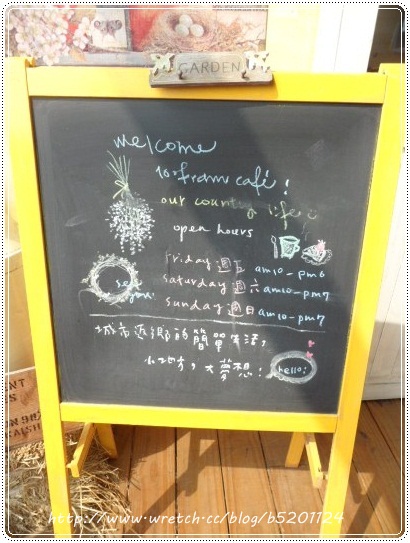 GARDEN
welcome
to fram café!
our country life
open hours
friday 週五 am10-pm6
saturday 週六 am10-pm7
sunday 週日 am10-pm7
的簡單生活,
小地方,大夢想!
hello;
http://www.wretch.cc/blog/b5201124